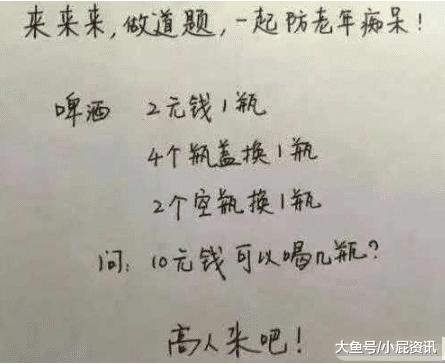 来来来,做道题,一起防老年痴呆!
啤酒 2元钱1瓶
4个瓶盖换1瓶
2个空瓶换1瓶
问:10元钱可以喝几瓶?
高人来吧!
大鱼号/小屁资讯